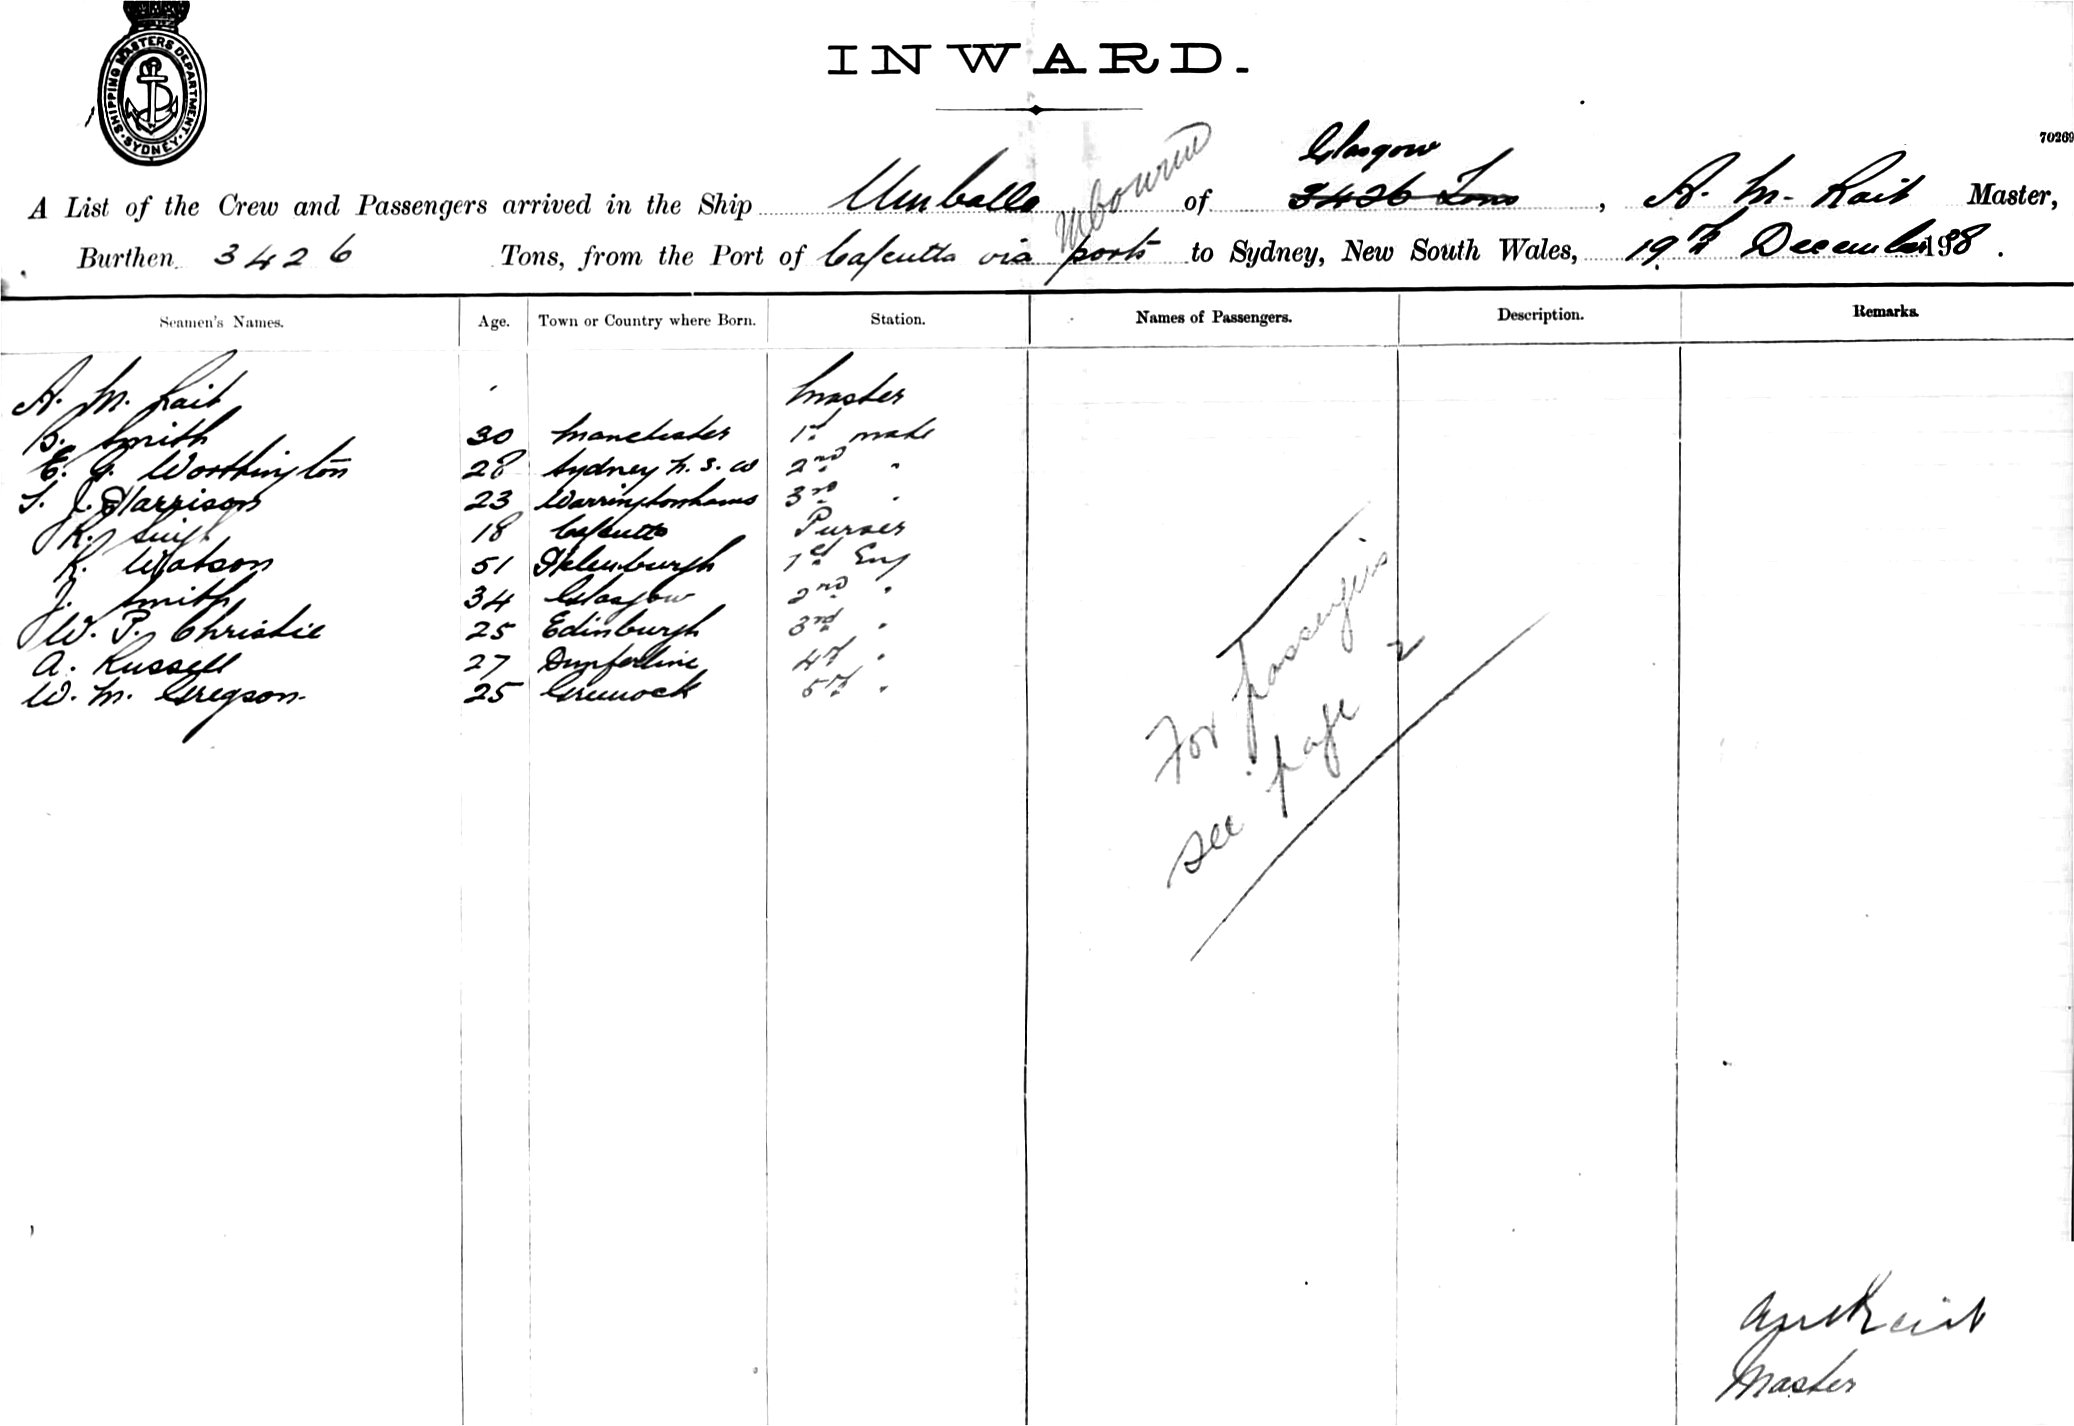 SHIPPING MASTERS DEPARTMENT. SYDNEY.
INWARD.
70269
Glasgow
A List of the Crew and Passengers arrived in the Ship Umballa of 3426 Tons, A. M. Rait Master,
Mbourne
Burthen 3426 Tons, from the Port of Calcutta via ports to Sydney, New South Wales, 19th December 1898.
Seamen's Names. Age. Town or Country where Born. Station. Names of Passengers. Description. Remarks.
A. M. Rait Master
B. Smith 30 Manchester 1st mate
E. G. Worthington 28 Sydney N. S. W 2nd "
T. J. Harrison 23 3rd "
R. 18 Calcutta Purser
R. Watson 51 Helenburgh 1st Eng
J. Smith 34 Glasgow 2nd "
W. P. Christie 25 Edinburgh 3rd "
A. Russell 27 Dunferline 4th "
W. M. Gregson 25 Greenock 5th "
For passengers
see page 2
A M Rait
Master